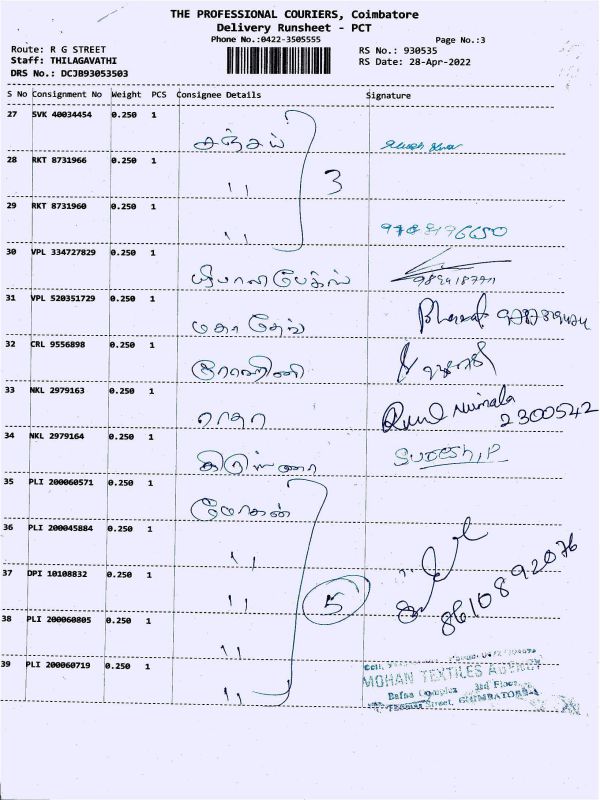 THE PROFESSIONAL COURIERS, Coimbatore
Delivery Runsheet - PCT
Phone No.:0422-3505555
Page No.:3
Route: R G STREET
RS No.: 930535
Staff: THILAGAVATHI
RS Date: 28-Apr-2022
DRS No.: DCJB93053503
S No Consignment No Weight PCS Consignee Details Signature
27 SVK 40034454 0.250 1
சஞ்சய்
28 RKT 8731966 0.250 1
" 3
29 RKT 8731960 0.250 1
"
30 VPL 334727829 0.250 1
31 VPL 520351729 0.250 1
மகாதேவ் Bharat
32 CRL 9556898 0.250 1
ரோஹிணி
33 NKL 2979163 0.250 1
ராதா Nirmala 2300542
34 NKL 2979164 0.250 1
SURESH.P
35 PLI 200060571 0.250 1
மோகன்
36 PLI 200045884 0.250 1
"
37 DPI 10108832 0.250 1
" 5 8610892076
38 PLI 200060805 0.250 1
"
39 PLI 200060719 0.250 1
"
MOHAN TEXTILES AGENCY
Bafna Complex 3rd Floor,
Street, COIMBATORE-1